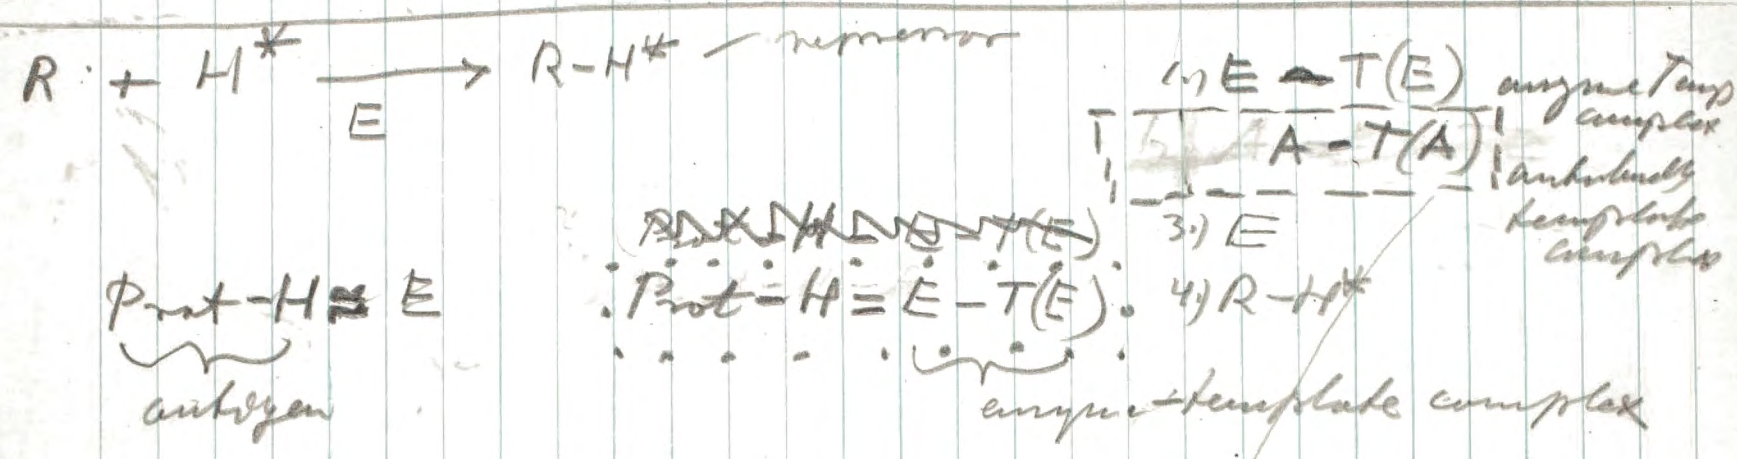 R + H* ⟶ R-H* — repressor
E
1.) E - T(E) enzyme Temp complex
A - T(A) antibody template complex
3.) E
4.) R-H*
Prot-H = E
antigen
Prot-H = E-T(E)
enzyme-template complex